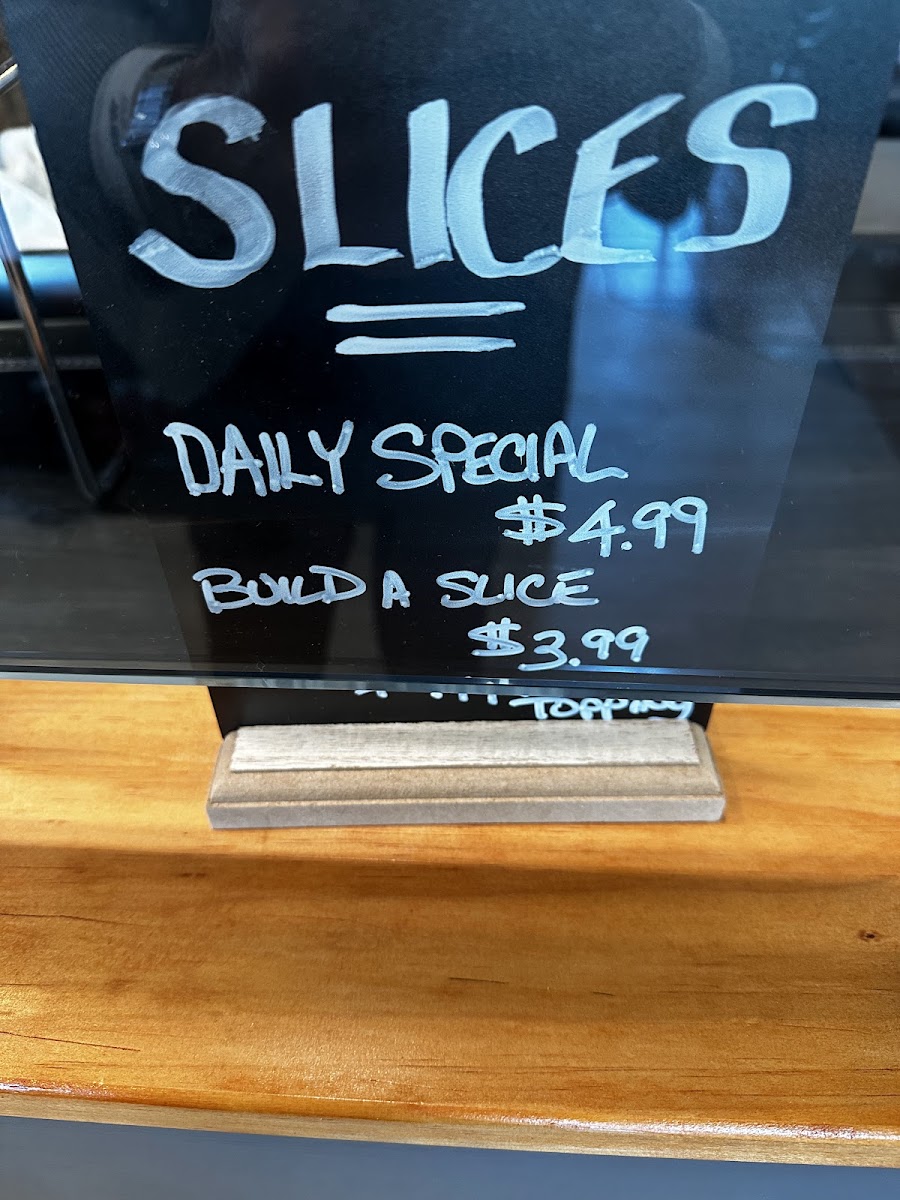 SLICES
DAILY SPECIAL
$4.99
BUILD A SLICE
$3.99
TOPPING